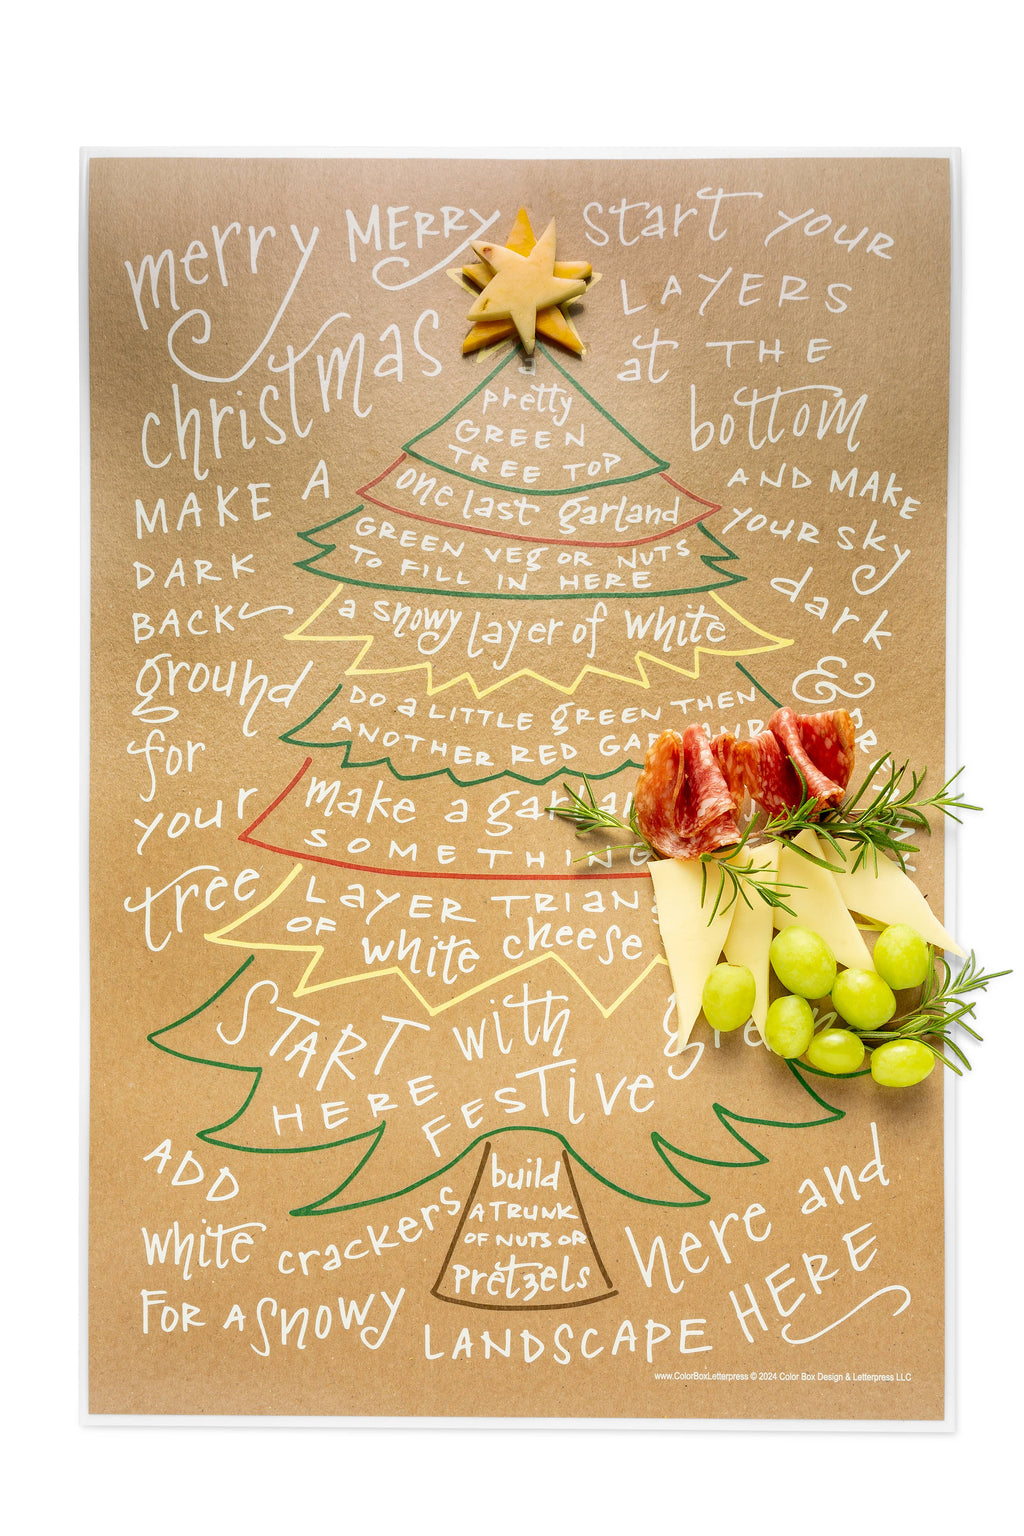 merry MERRY
christmas
MAKE A
DARK
BACK
ground
for
your
tree
start your
LAYERS
at THE
bottom
AND MAKE
your sky
dark
&
a
pretty
GREEN
TREE TOP
one last garland
GREEN VEG OR NUTS
TO FILL IN HERE
a snowy layer of white
DO a LITTLE green THEN
ANOTHER RED
make a
SOMETHING
LAYER
OF white cheese
START with
HERE FESTIVE
build
A TRUNK
OF NUTS OR
pretzels
ADD
white crackers
FOR A snowy
LANDSCAPE
here and
HERE
www.ColorBoxLetterpress © 2024 Color Box Design & Letterpress LLC